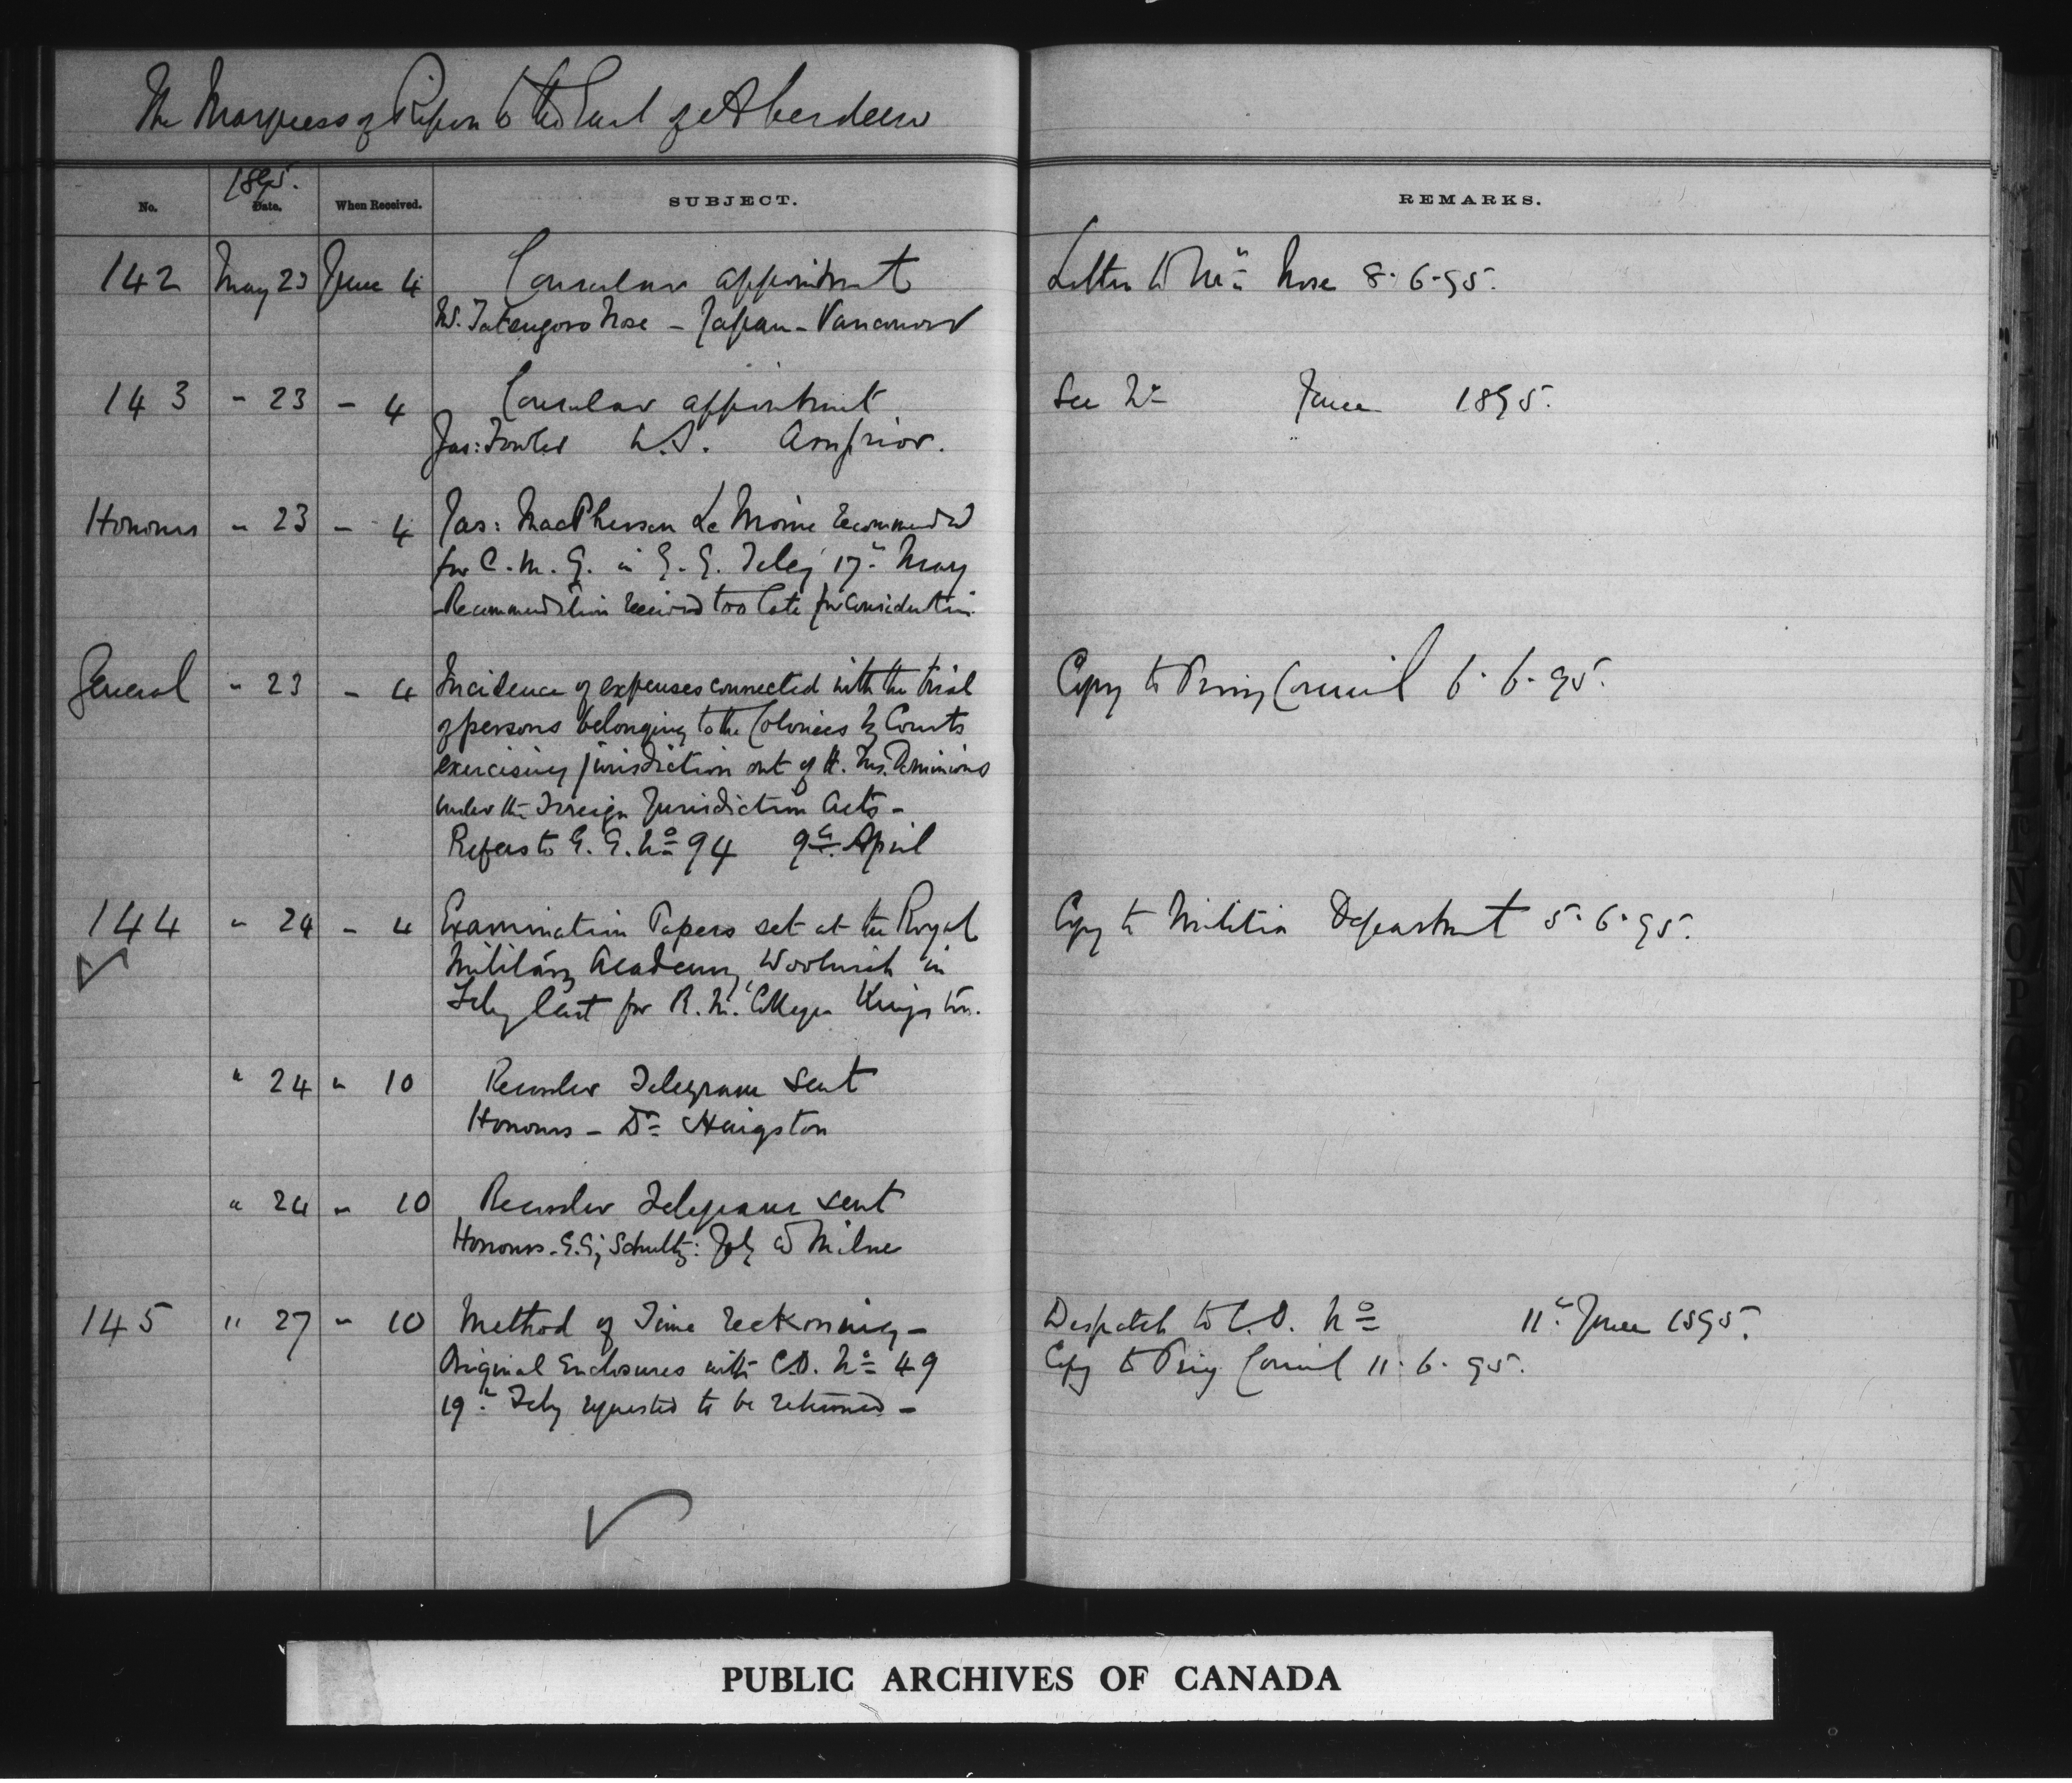 The Marquess of Ripon to the Earl of Aberdeen
No. 1895. Date. When Received. SUBJECT. REMARKS.
142 May 23 June 4 Consular appointment Letter to Mr. Nose 8.6.95.
M. Tatsugoro Nose - Japan - Vancouver
143 " 23 " 4 Consular appointment See No June 1895.
Jas: Fowler U.S. Arnprior.
Honours " 23 " 4 Jas: MacPherson Le Moine recommended
for C.M.G. in G.G. Teleg 17th May
Recommendation received too late for consideration.
General " 23 " 4 Incidence of expenses connected with the trial Copy to Privy Council 6.6.95.
of persons belonging to the Colonies by Courts
exercising jurisdiction out of H. Ms. Dominions
under the Foreign Jurisdiction Acts -
Refers to G.G. No 94 9th April
144 " 24 " 4 Examination Papers set at the Royal Copy to Militia Department 5.6.95.
Military Academy, Woolwich in
Feby last for R.M. College Kingston.
" 24 " 10 Recorder Telegram sent
Honours - Dr Hingston
" 24 " 10 Recorder Telegram sent
Honours - G.G; Schultz: Joly & Milne
145 " 27 " 10 Method of Time reckoning - Despatch to C.O. No 11th June 1895.
Original Enclosures with C.O. No 49 Copy to Privy Council 11.6.95.
19th Feby requested to be returned -
PUBLIC ARCHIVES OF CANADA